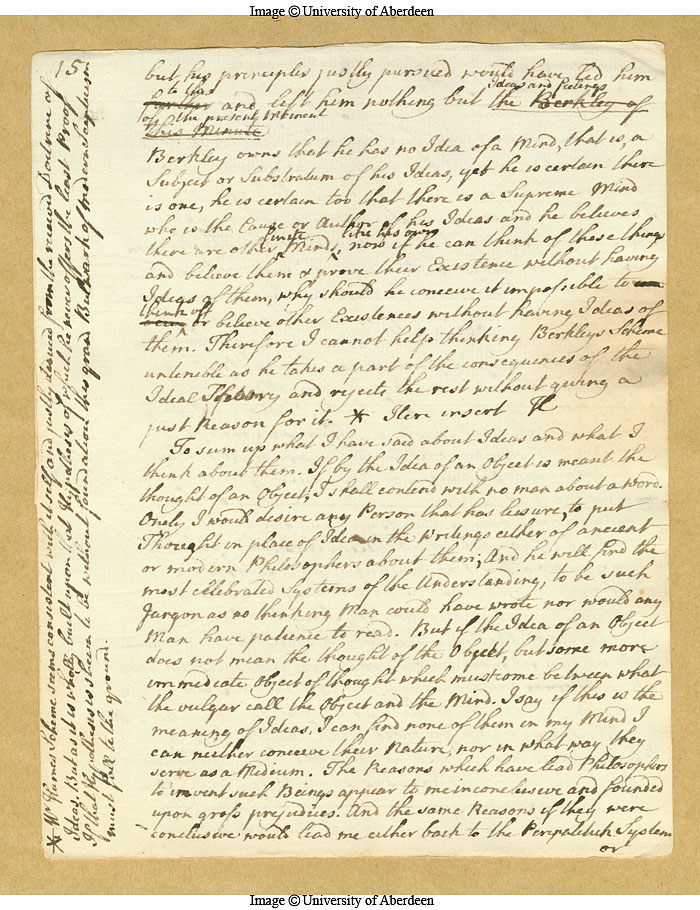 Image © University of Aberdeen
15
but his principles justly pursued would have led him
to this Ideas and feelings
farther and left him nothing but the Berkley of
of the present Moment
this Minute
Berkley owns that he has no Idea of a Mind, that is, a
Subject or Substratum of his Ideas, yet he is certain there
is one, he is certain too that there is a Supreme Mind
who is the Cause or Author of his Ideas and he believes
finite like his own
there are other Minds, now if he can think of these things
and believe them & prove their Existence without having
Ideas of them, why should he conceive it impossible to
think of
or believe other Existences without having Ideas of
them. Therefore I cannot help thinking Berkleys Scheme
untenible as he takes a part of the consequences of the
Ideal Theory and rejects the rest without giving a
just Reason for it. * Here insert
To sum up what I have said about Ideas and what I
think about them. If by the Idea of an Object is meant the
thought of an Object, I shall contend with no man about a word.
Onely, I would desire any Person that has leisure, to put
Thought in place of Idea in the Writings either of ancient
or modern Philosophers about them, And he will find the
most celebrated Systems of the Understanding, to be such
Jargon as no thinking Man could have wrote nor would any
Man have patience to read. But if the Idea of an Object
does not mean the thought of the Object, but some more
immediate Object of thought which must come between what
the vulgar call the Object and the Mind. I say if this is the
meaning of Ideas, I can find none of them in my Mind I
can neither conceive their Nature, nor in what way they
serve as a Medium. The Reasons which have lead Philosophers
to invent such Beings appear to me inconclusive and founded
upon gross prejudices. And the same Reasons if they were
conclusive would lead me either back to the Perpatitick System
or
* Mr Humes Scheme seems consistent with it self and justly deduced from the received Doctrine of
Ideas. But as it is wholly built upon that Hypothesis of which he never offers the least Proof
If that Hypothesis is shewn to be without foundation this grand Bulwark of modern Scepticism
must fall to the ground.
Image © University of Aberdeen